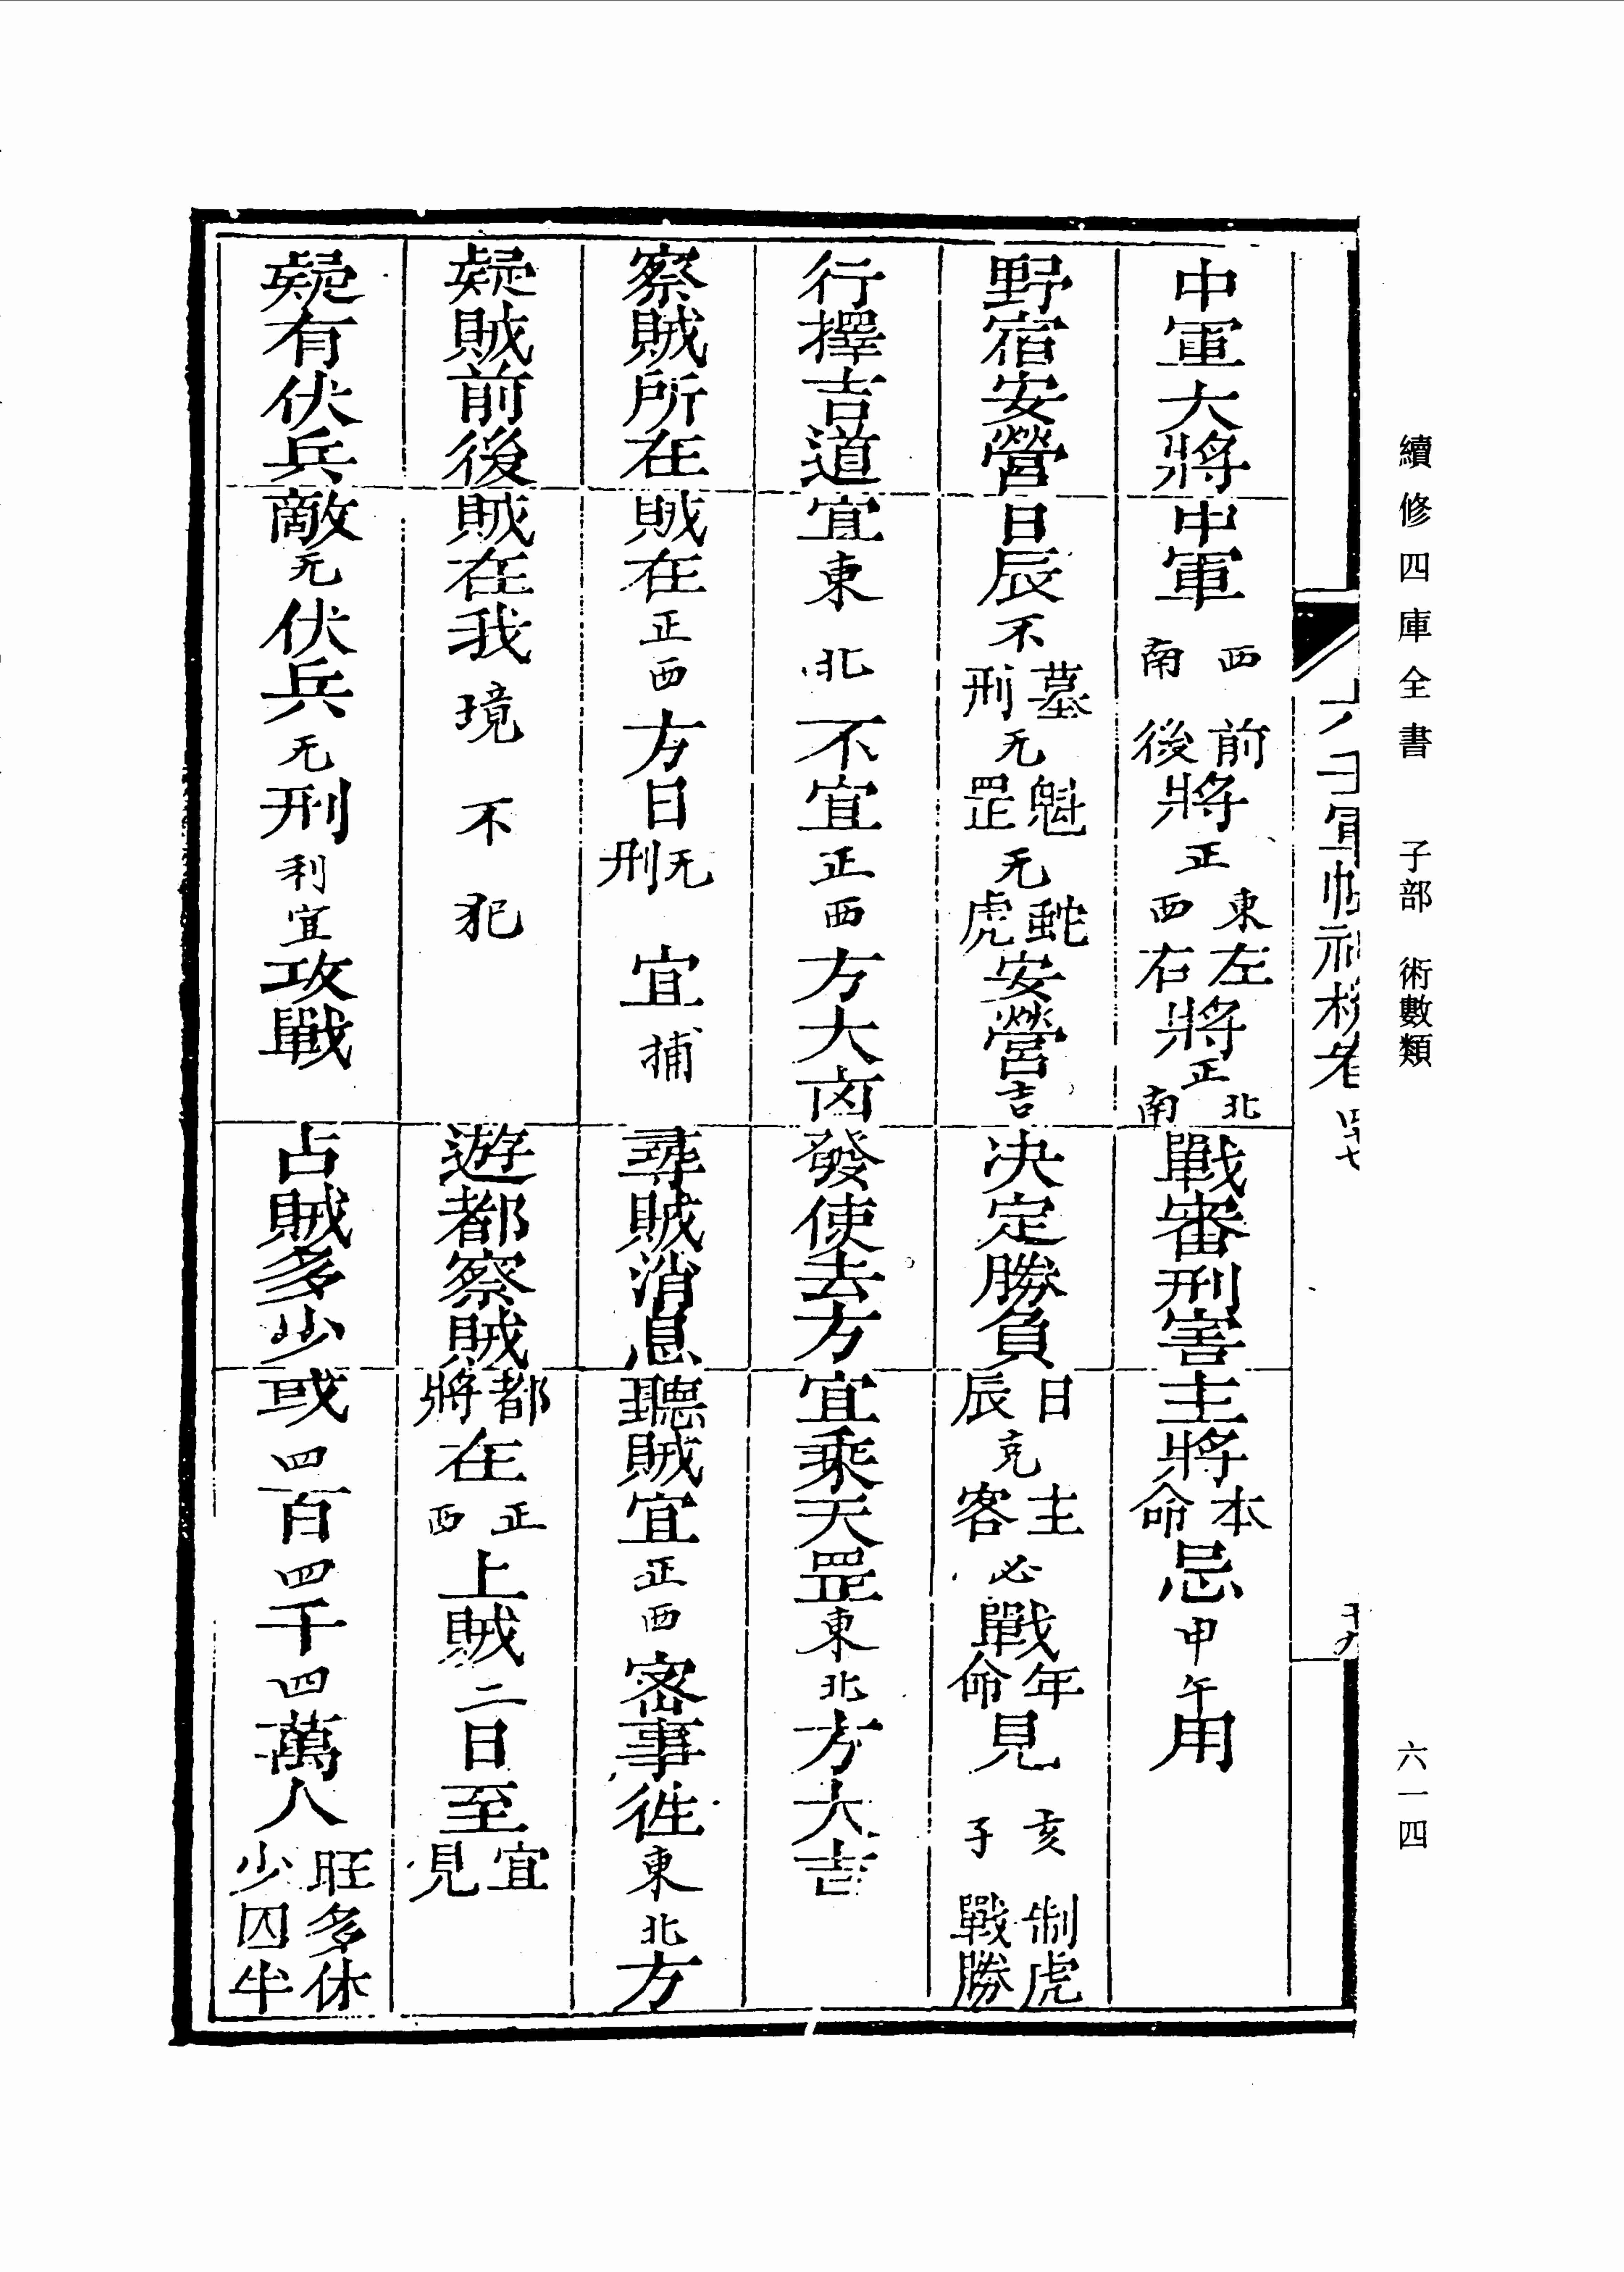 續修四庫全書 子部 術數類
六一四
六壬軍帳神機卷四十七
十九
中軍大將 中軍西南前後將正東西左右將正北南 戰審刑害 主將本命忌甲午用
野宿安營 日辰不墓刑无魁罡无蛇虎安營吉 決定勝負 日辰克主客必戰年命見亥子制虎戰勝
行擇吉道 宜東北不宜正西方大凶 發使去方 宜乘天罡東北方大吉
察賊所在 賊在正西方日无刑宜捕 尋賊消息 聽賊宜正西密事徃東北方
疑賊前後 賊在我境不犯 遊都察賊 都將在正西上賊二日至宜見
疑有伏兵 敵无伏兵无刑利宜攻戰 占賊多少 或四百四千四萬人旺多休少囚半